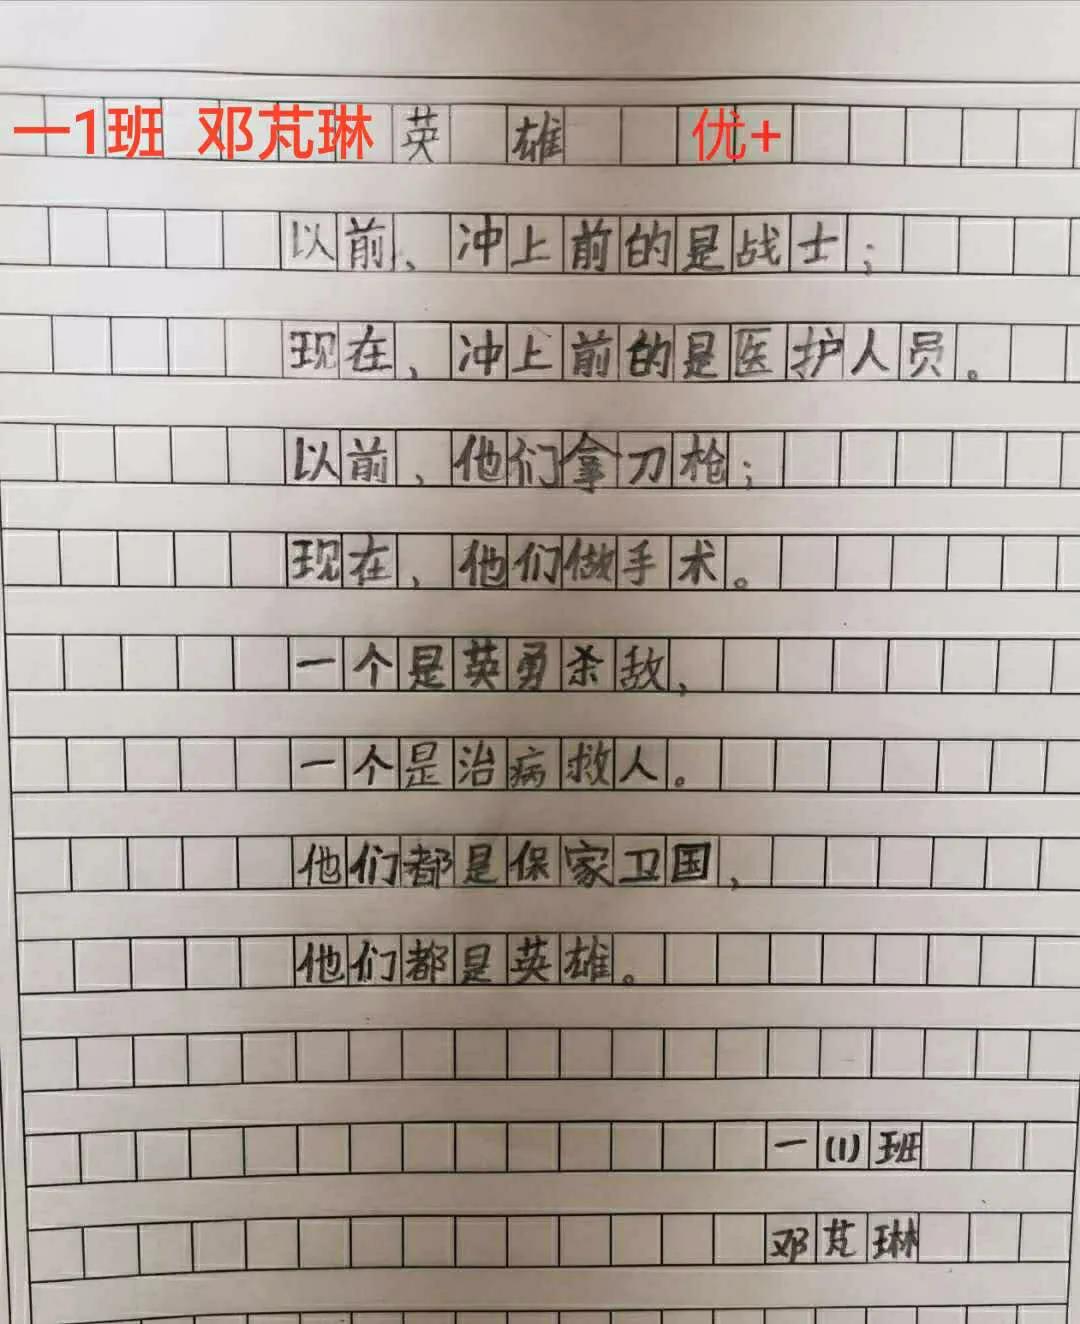 一1班 邓芃琳 英 雄 优+
以前、冲上前的是战士；
现在，冲上前的是医护人员。
以前，他们拿刀枪；
现在，他们做手术。
一个是英勇杀敌，
一个是治病救人。
他们都是保家卫国，
他们都是英雄。
一(1)班
邓芃琳